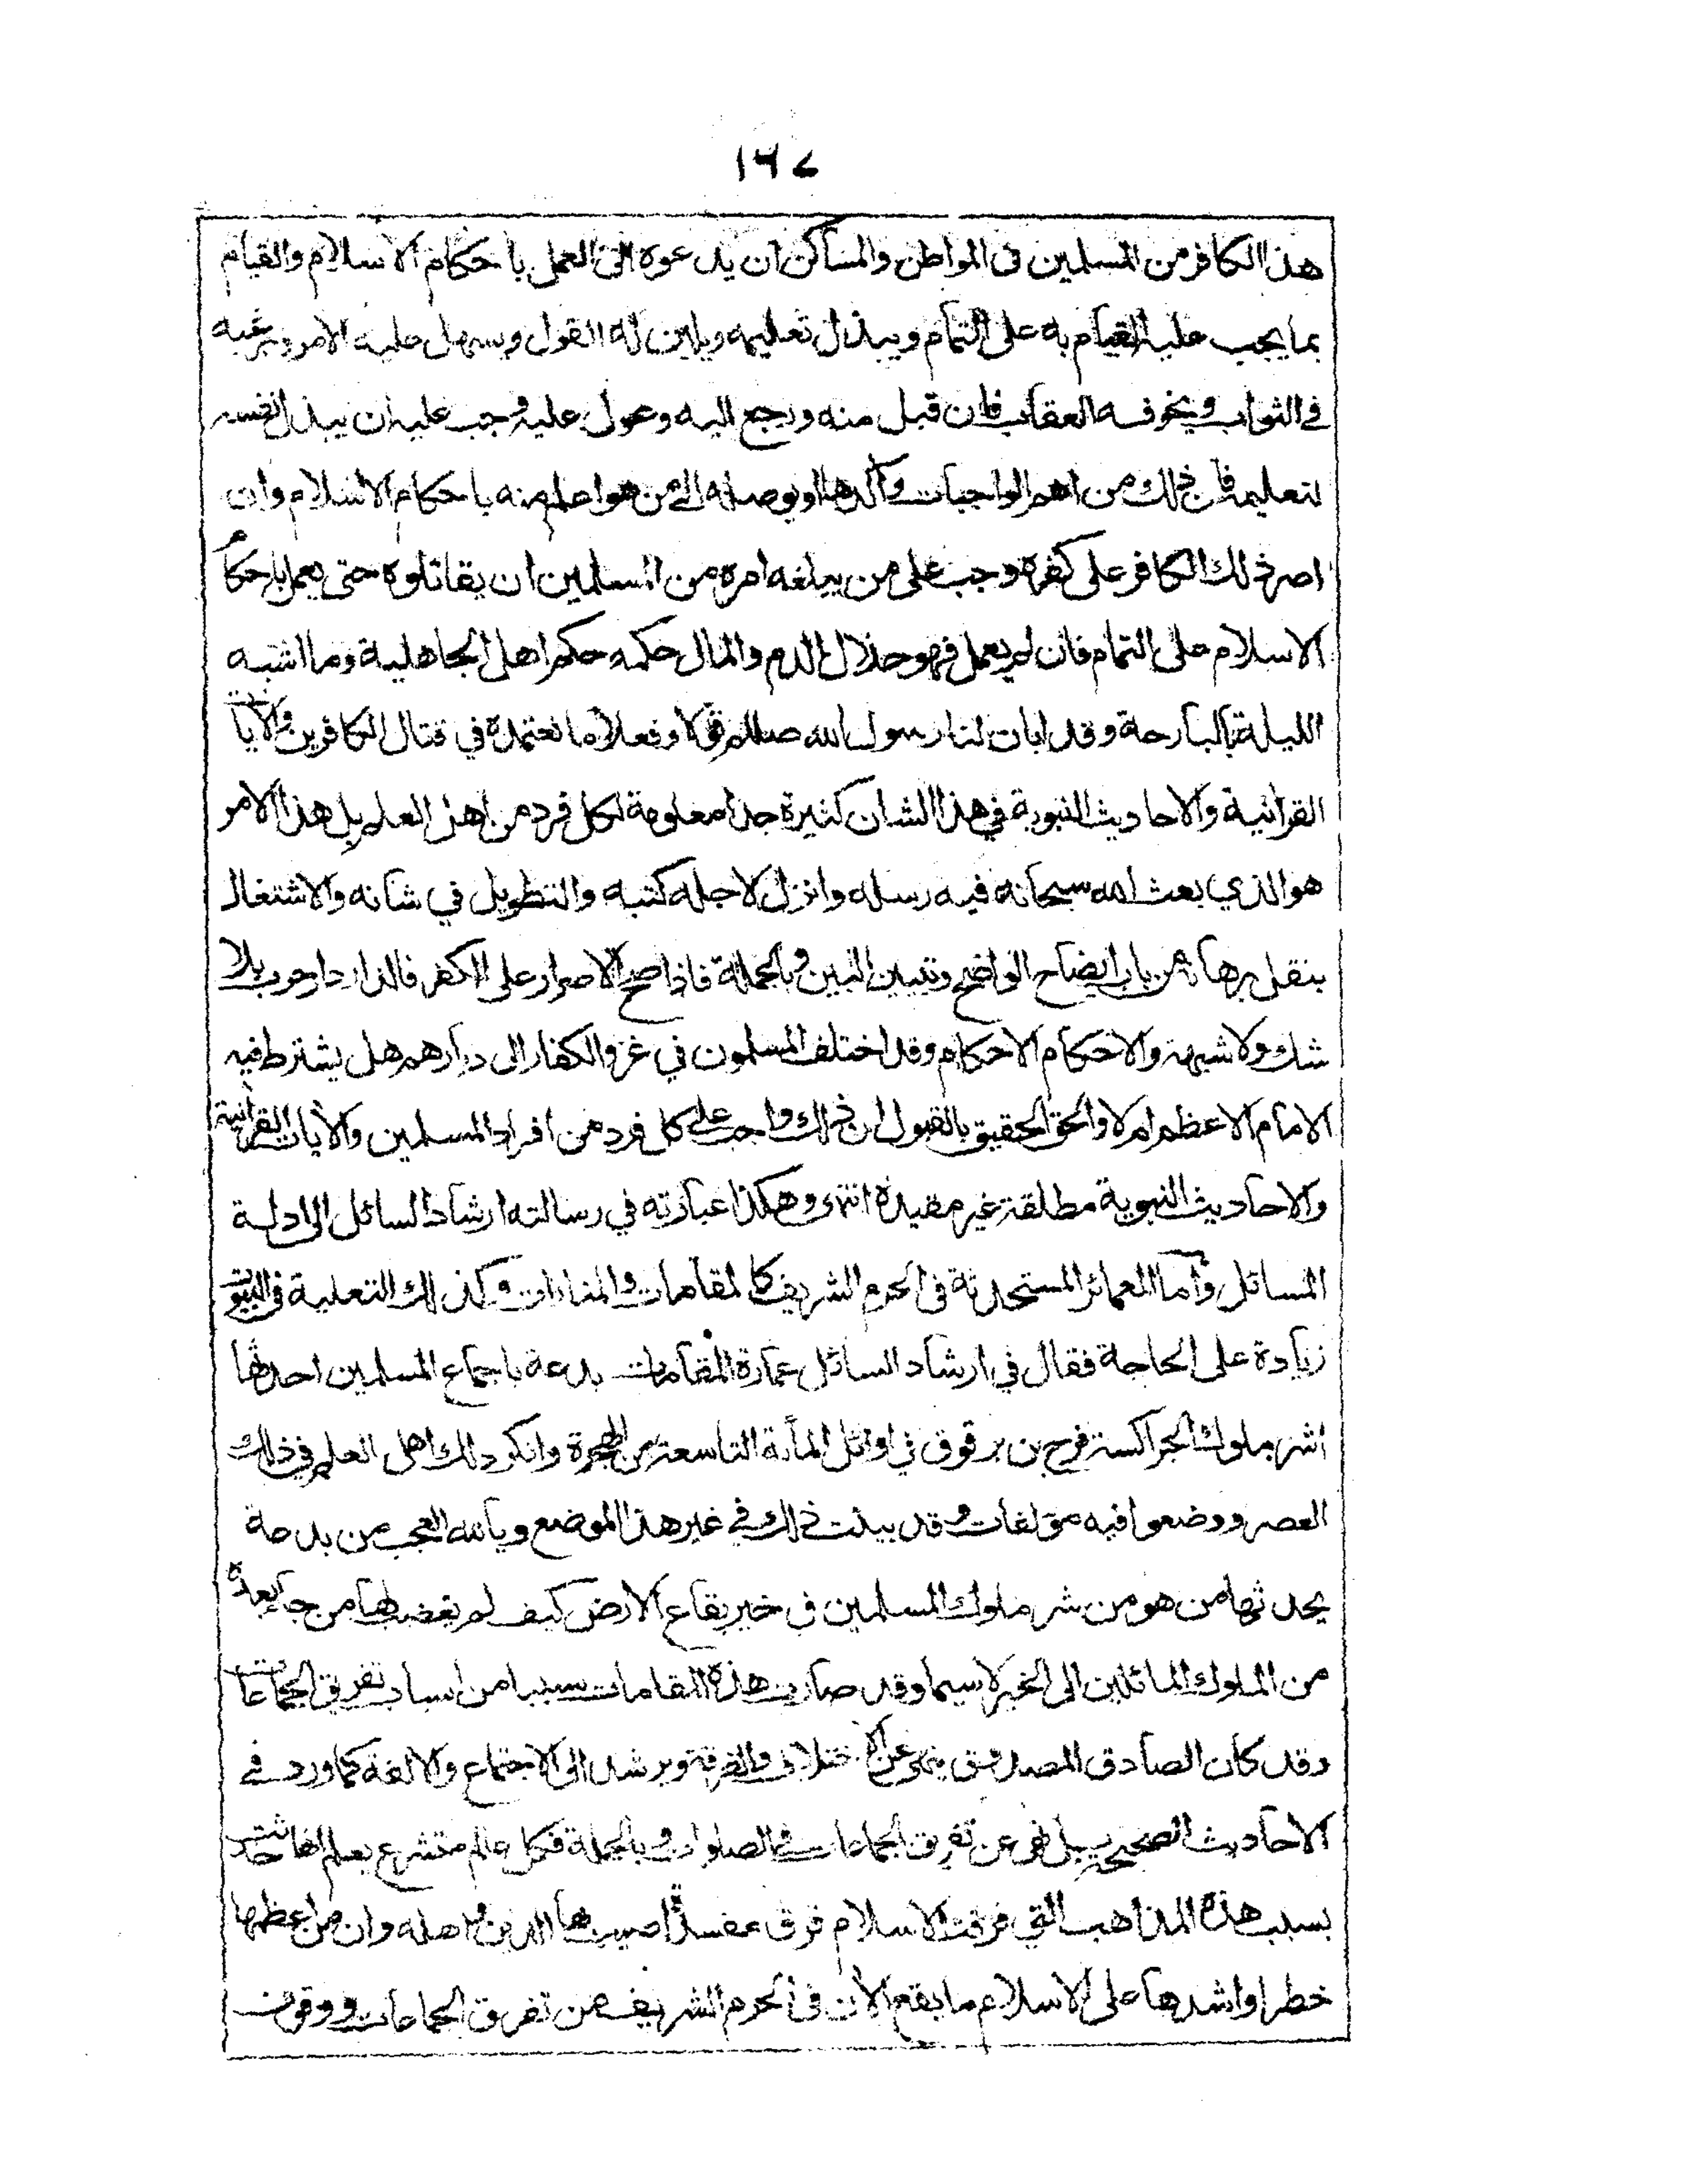 ١٦٧
هذا الكافر من المسلمين في المواطن والمساكن ان يدعوه الى العمل باحكام الاسلام والقيام
بما يجب عليه القيام به على التمام ويبذل تعليمه ويلين له القول ويسهل عليه الامر ويرغبه
في الثواب ويخوفه العقاب فان قبل منه ورجع اليه وعول عليه وجب عليه ان يبذل نفسه
لتعليمه فان ذلك من اهم الواجبات وآكدها او يوصله الى من هو اعلم منه باحكام الاسلام وان
اصر ذلك الكافر على كفره وجب على من يبلغه امره من المسلمين ان يقاتلوه حتى يعمل باحكام
الاسلام على التمام فان لم يعمل فهو حلال الدم والمال حكمه حكم اهل الجاهلية وما اشبه
الليلة بالبارحة وقد ابان لنا رسول الله صللم قولا وفعلا ما نعتمده في قتال الكافرين والآيات
القرآنية والاحاديث النبوية في هذا الشان كثيرة جدا معلومة لكل فرد من اهل العلم بل هذا الامر
هو الذي بعث الله سبحانه فيه رسله وانزل لاجله كتبه والتطويل في شانه والاشتغال
بنقل برهانه من باب ايضاح الواضح وتبيين البين وبالجملة فاذا صح الاصرار على الكفر فالدار دار حرب بلا
شك ولا شبهة والاحكام الاحكام وقد اختلف المسلمون في غزو الكفار الى ديارهم هل يشترط فيه
الامام الاعظم ام لا والحق الحقيق بالقبول ان ذلك واجب على كل فرد من افراد المسلمين والآيات القرآنية
والاحاديث النبوية مطلقة غير مقيدة انتهى وهكذا عبارته في رسالته ارشاد السائل الى ادلة
المسائل واما العمائر المستحدثة في الحرم الشريف كالمقامات والمنارات وكذلك التعلية في البيوت
زيادة على الحاجة فقال في ارشاد السائل عمارة المقامات بدعة باجماع المسلمين احدثها
اشر ملوك الجراكسة فرج بن برقوق في اوائل المأة التاسعة من الهجرة وانكر ذلك اهل العلم في ذلك
العصر ووضعوا فيه مؤلفات وقد بينت ذلك في غير هذا الموضع ويا لله العجب من بدعة
يحدثها من هو من شر ملوك المسلمين في خير بقاع الارض كيف لم يغضب لها من جاء بعده
من الملوك المائلين الى الخير لاسيما وقد صارت هذه المقامات سببا من اسباب تفريق الجماعات
وقد كان الصادق المصدوق ينهى عن الاختلاف والفرقة ويرشد الى الاجتماع والالفة كما ورد في
الاحاديث الصحيحة بل نهى عن تفريق الجماعات في الصلوات وبالجملة فكل عالم متشرع يعلم انها حدثت
بسبب هذه المذاهب التي فرقت الاسلام فرق مفسدة اصيب بها الدين واهله وان من اعظمها
خطرا واشدها على الاسلام ما يقع الآن في الحرم الشريف من تفريق الجماعات ووقوف